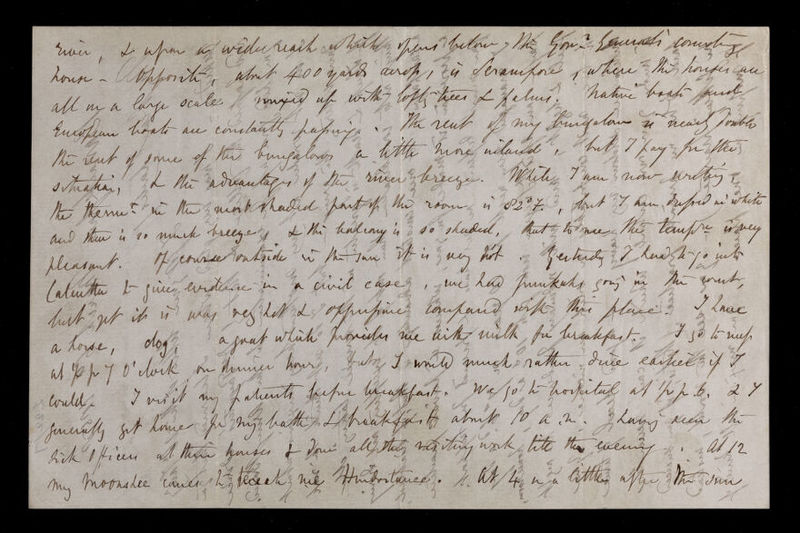 river, & upon a wide reach which opens below, the Gov.r General's country
house - Opposite, about 400 yards across, is Serampore, where the houses are
all on a large scale mixed up with lofty trees & palms. Native boats and
European boats are constantly passing. The rent of my bungalow is nearly double
the rent of some of the bungalows a little more inland, but I pay for the
situation, & the advantages of the river breeze. While I am now writing,
the therm.r in the most shaded part of the room is 82°7, but I am dressed in white
and there is so much breeze, & the balcony is so shaded, that to me the temp.re is very
pleasant. Of course outside in the sun it is very hot. Yesterday I had to go into
Calcutta to give evidence in a civil case, we had punkahs going in the court,
but yet it was very hot & oppressive compared with this place. I have
a horse, dog, a goat which provides me with milk for breakfast. I go to mess
at ½ p 7 O'clock our dinner hour, but I would much rather dine earlier if I
could. I visit my patients before breakfast. We go to hospital at ½ p. 6. & I
generally get home for my bath & breakfast about 10 a.m. having seen the
sick Officers at their houses & done all the visiting work till the evening. At 12
my Moonshee comes to teach me Hindostanee. At 4 or a little after the sun